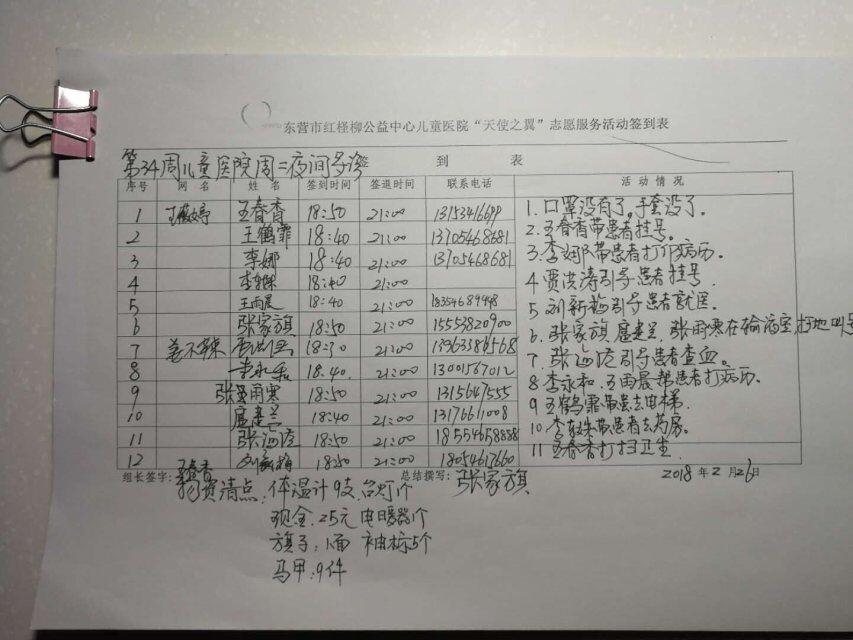 东营市红柽柳公益中心儿童医院“天使之翼”志愿服务活动签到表
第34周儿童医院周二夜间导诊
签 到 表
序号 网名 姓名 签到时间 签退时间 联系电话 活动情况
1 王春香 18:50 21:00
2 王鹤霏 18:40 21:00 13705468681
3 李娜 18:40 21:00 13705468681
4 18:40 21:00
5 王雨晨 18:40 21:00
6 张家旗 18:50 21:00 15553820900
7 21:00
8 李永和 18:40 21:00 13001567012
9 张雨寒 18:50 21:00 1315647555
10 18:40 21:00 13176611008
11 张海陵 18:50 21:00 18554658858
12 刘新梅 18:50 21:00 18054617660
1. 口罩没有了,手套没了。
2. 王春香带患者挂号。
3. 李娜带患者打印病历。
4 贾洪涛引导患者挂号.
5 刘新梅引导患者就医
6. 张家旗 张雨寒在输液室,扫地叫号
7. 张海陵引导患者查血。
8 李永和.王雨晨帮患者打病历.
9 王鹤霏带患去电梯.
10. 带患者去药房。
11 王春香打扫卫生
组长签字: 王春香 总结撰写: 张家旗 2018 年 2 月 26 日
物资清点:体温计9支,台灯1个
现金:25元 电暖器1个
旗子:1面 袖标5个
马甲:9件